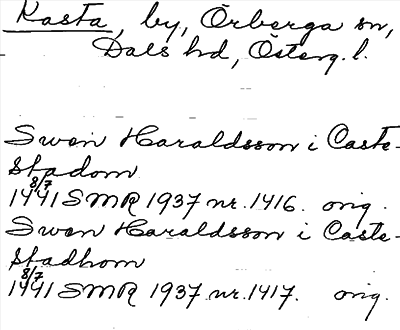 Kasta, by, Örberga sn,
Dals hd, Österg. l.
Swen Haraldsson i Caste-
stadom
1441 8/7 SMR 1937 nr. 1416. orig.
Swen Haraldsson i Caste-
stadhom
1441 8/7 SMR 1937 nr. 1417. orig.